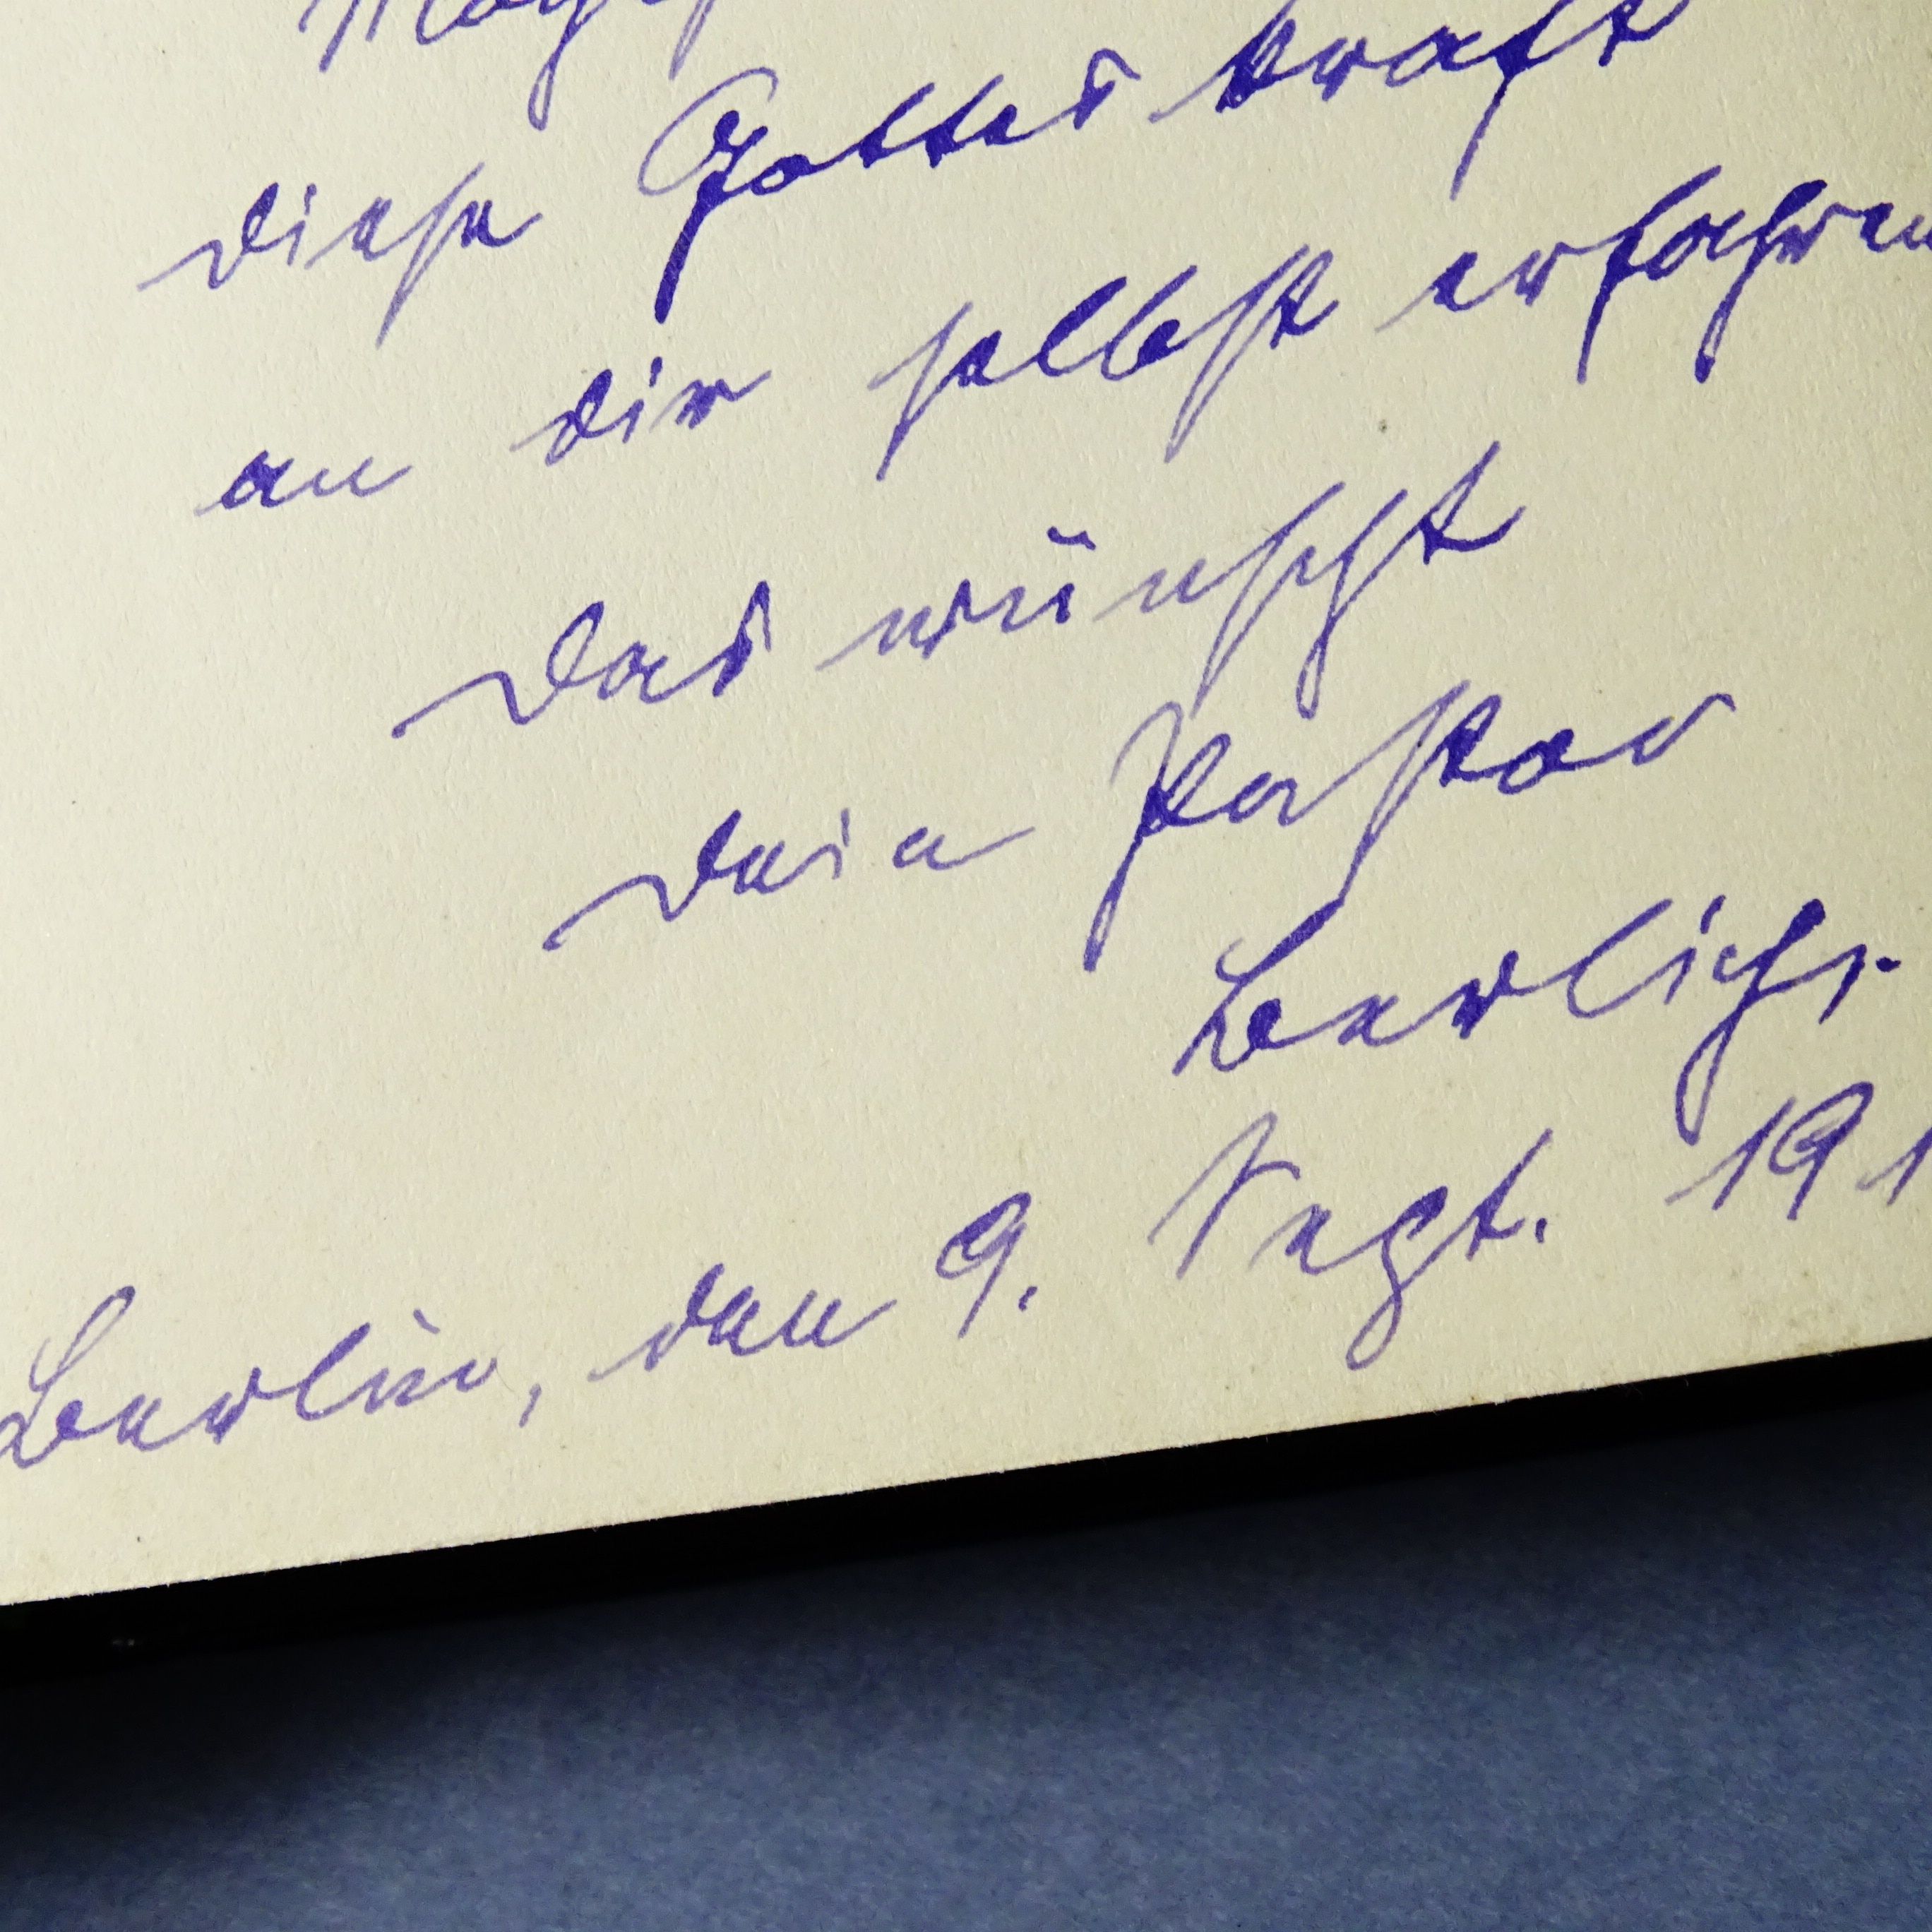 diese Gotteskraft
an dir selbst erfahren
Das wünscht
Dein Pastor
Berlin, den 9. Sept. 191